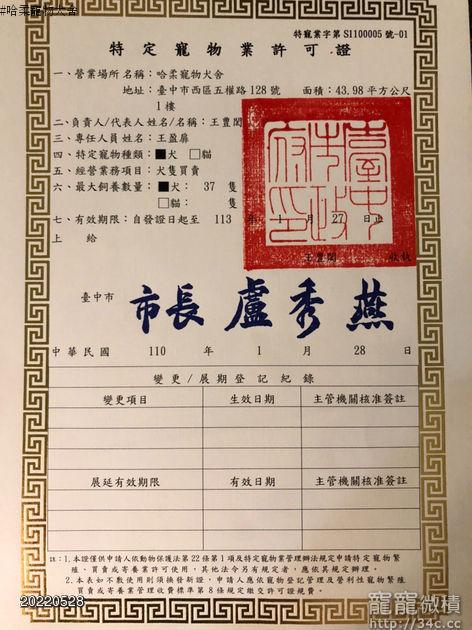 #哈柔寵物犬舍
特寵業字第 SI100005 號-01
特定寵物業許可證
一、營業場所名稱：哈柔寵物犬舍
地址：臺中市西區五權路128號 面積：43.98 平方公尺
1樓
二、負責人/代表人姓名/名稱：王豊閣
三、專任人員姓名：王盈扉
四、特定寵物種類：■犬 □貓
五、經營業務項目：犬隻買賣
六、最大飼養數量：■犬： 37 隻
□貓： 隻
七、有效期限：自發證日起至 113 年 1 月 27 日止
上 給
王豊閣 收執
臺中市政府印
臺中市 市長 盧秀燕
中華民國 110 年 1 月 28 日
變更/展期登記紀錄
變更項目 生效日期 主管機關核准簽註
展延有效期限 有效日期 主管機關核准簽註
註：1.本證僅供申請人依動物保護法第22條第1項及特定寵物業管理辦法規定申請特定寵物繁殖
、買賣或寄養業許可使用，其他法令另有規定者，應依其規定辦理。
2.本表如不敷使用則須換發新證，申請人應依寵物登記管理及營利性寵物繁殖
買賣或寄養業管理收費標準第8條規定繳交許可證規費。
20220528
寵寵微積
http://34c.cc